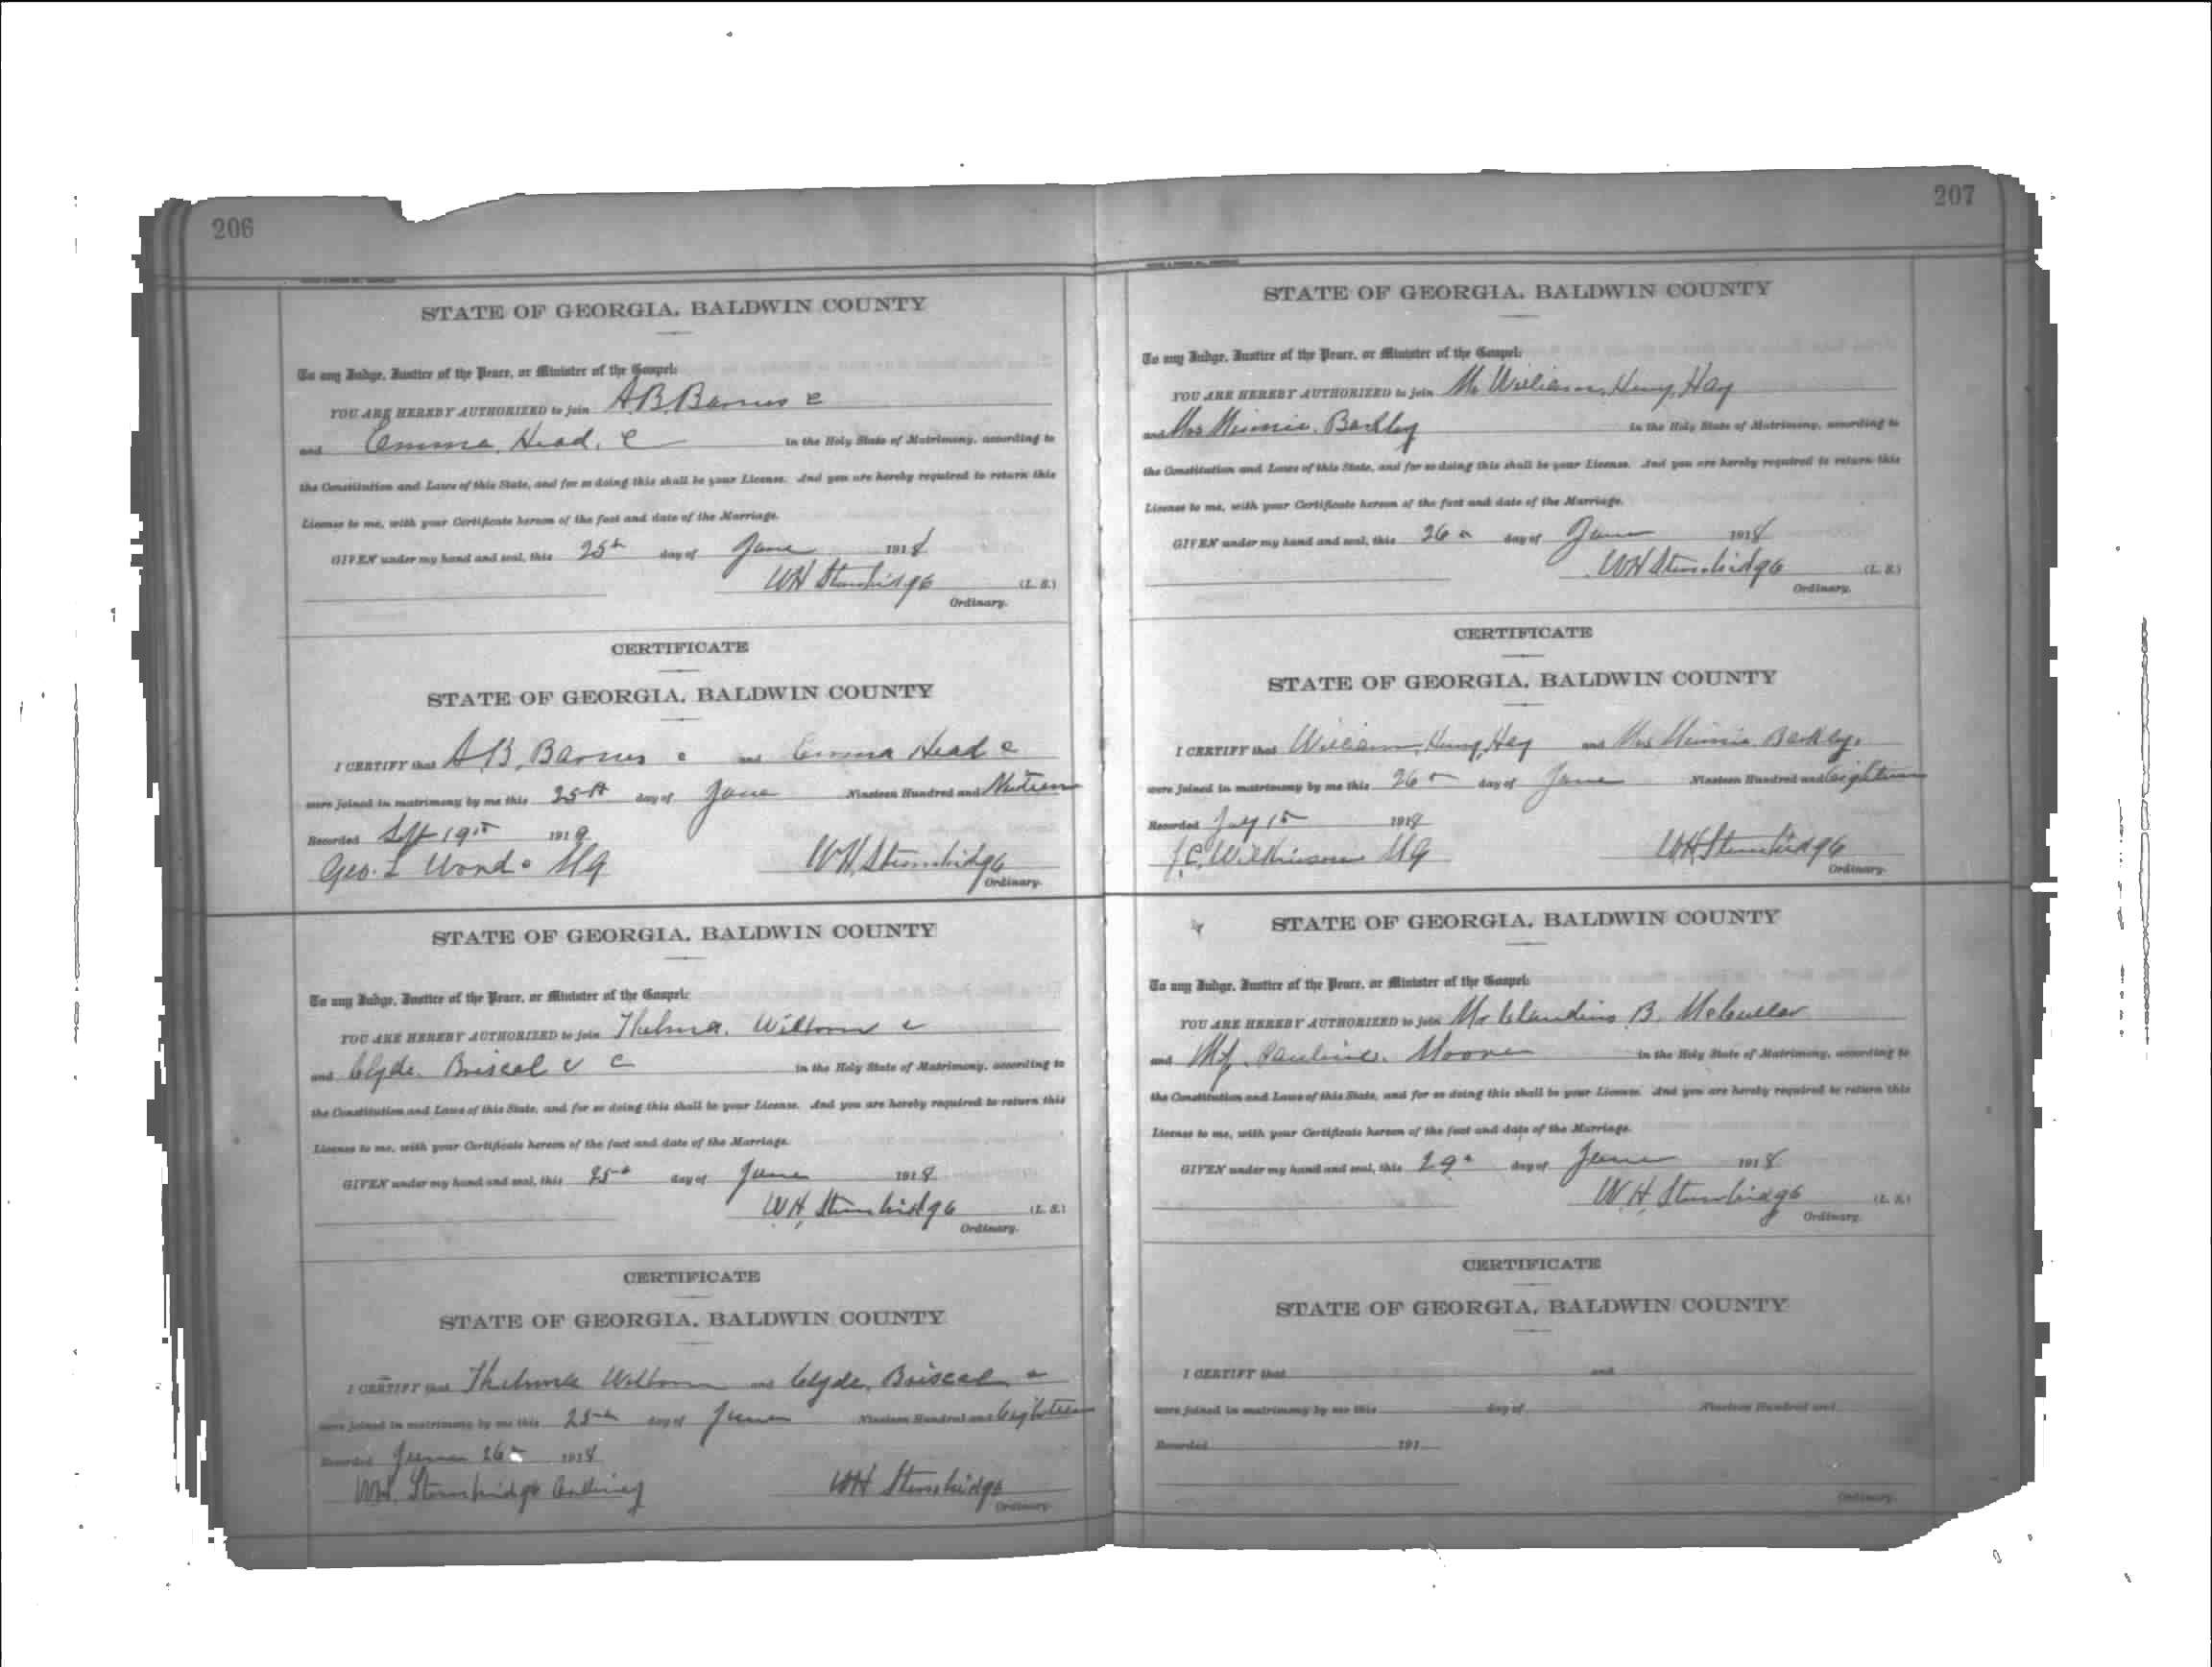 206
STATE OF GEORGIA, BALDWIN COUNTY
To any Judge, Justice of the Peace, or Minister of the Gospel:
YOU ARE HEREBY AUTHORIZED to join A.B. Barnes c
and Emma Head, c in the Holy State of Matrimony, according to
the Constitution and Laws of this State, and for so doing this shall be your License. And you are hereby required to return this
License to me, with your Certificate hereon of the fact and date of the Marriage.
GIVEN under my hand and seal, this 25th day of June 1918
WH Stembridge (L. S.)
Ordinary.
CERTIFICATE
STATE OF GEORGIA, BALDWIN COUNTY
I CERTIFY that A.B. Barnes c and Emma Head c
were joined in matrimony by me this 25th day of June Nineteen Hundred and
Recorded Sept 19th 1919
Geo. L MG WH Stembridge
Ordinary.
STATE OF GEORGIA, BALDWIN COUNTY
To any Judge, Justice of the Peace, or Minister of the Gospel:
YOU ARE HEREBY AUTHORIZED to join Thelma. c
and Clyde. c in the Holy State of Matrimony, according to
the Constitution and Laws of this State, and for so doing this shall be your License. And you are hereby required to return this
License to me, with your Certificate hereon of the fact and date of the Marriage.
GIVEN under my hand and seal, this 25th day of June 1918
WH Stembridge (L. S.)
Ordinary.
CERTIFICATE
STATE OF GEORGIA, BALDWIN COUNTY
I CERTIFY that Thelma and Clyde, c
were joined in matrimony by me this 25th day of June Nineteen Hundred and Eighteen
Recorded June 26th 1918
WH Stembridge Ordinary WH Stembridge
Ordinary.
207
STATE OF GEORGIA, BALDWIN COUNTY
To any Judge, Justice of the Peace, or Minister of the Gospel:
YOU ARE HEREBY AUTHORIZED to join Mr William Henry Hay
and Mrs Minnie Barkley in the Holy State of Matrimony, according to
the Constitution and Laws of this State, and for so doing this shall be your License. And you are hereby required to return this
License to me, with your Certificate hereon of the fact and date of the Marriage.
GIVEN under my hand and seal, this 26th day of June 1918
WH Stembridge (L. S.)
Ordinary.
CERTIFICATE
STATE OF GEORGIA, BALDWIN COUNTY
I CERTIFY that William Henry Hay and Mrs Minnie Barkley.
were joined in matrimony by me this 26th day of June Nineteen Hundred and Eighteen
Recorded July 1st 1918
J.C. Wilkinson MG WH Stembridge
Ordinary.
STATE OF GEORGIA, BALDWIN COUNTY
To any Judge, Justice of the Peace, or Minister of the Gospel:
YOU ARE HEREBY AUTHORIZED to join Mr Claudius B. McCullar
and Pauline Moore in the Holy State of Matrimony, according to
the Constitution and Laws of this State, and for so doing this shall be your License. And you are hereby required to return this
License to me, with your Certificate hereon of the fact and date of the Marriage.
GIVEN under my hand and seal, this 29th day of June 1918
W.H. Stembridge (L. S.)
Ordinary.
CERTIFICATE
STATE OF GEORGIA, BALDWIN COUNTY
I CERTIFY that and
were joined in matrimony by me this day of Nineteen Hundred and
Recorded 191
Ordinary.